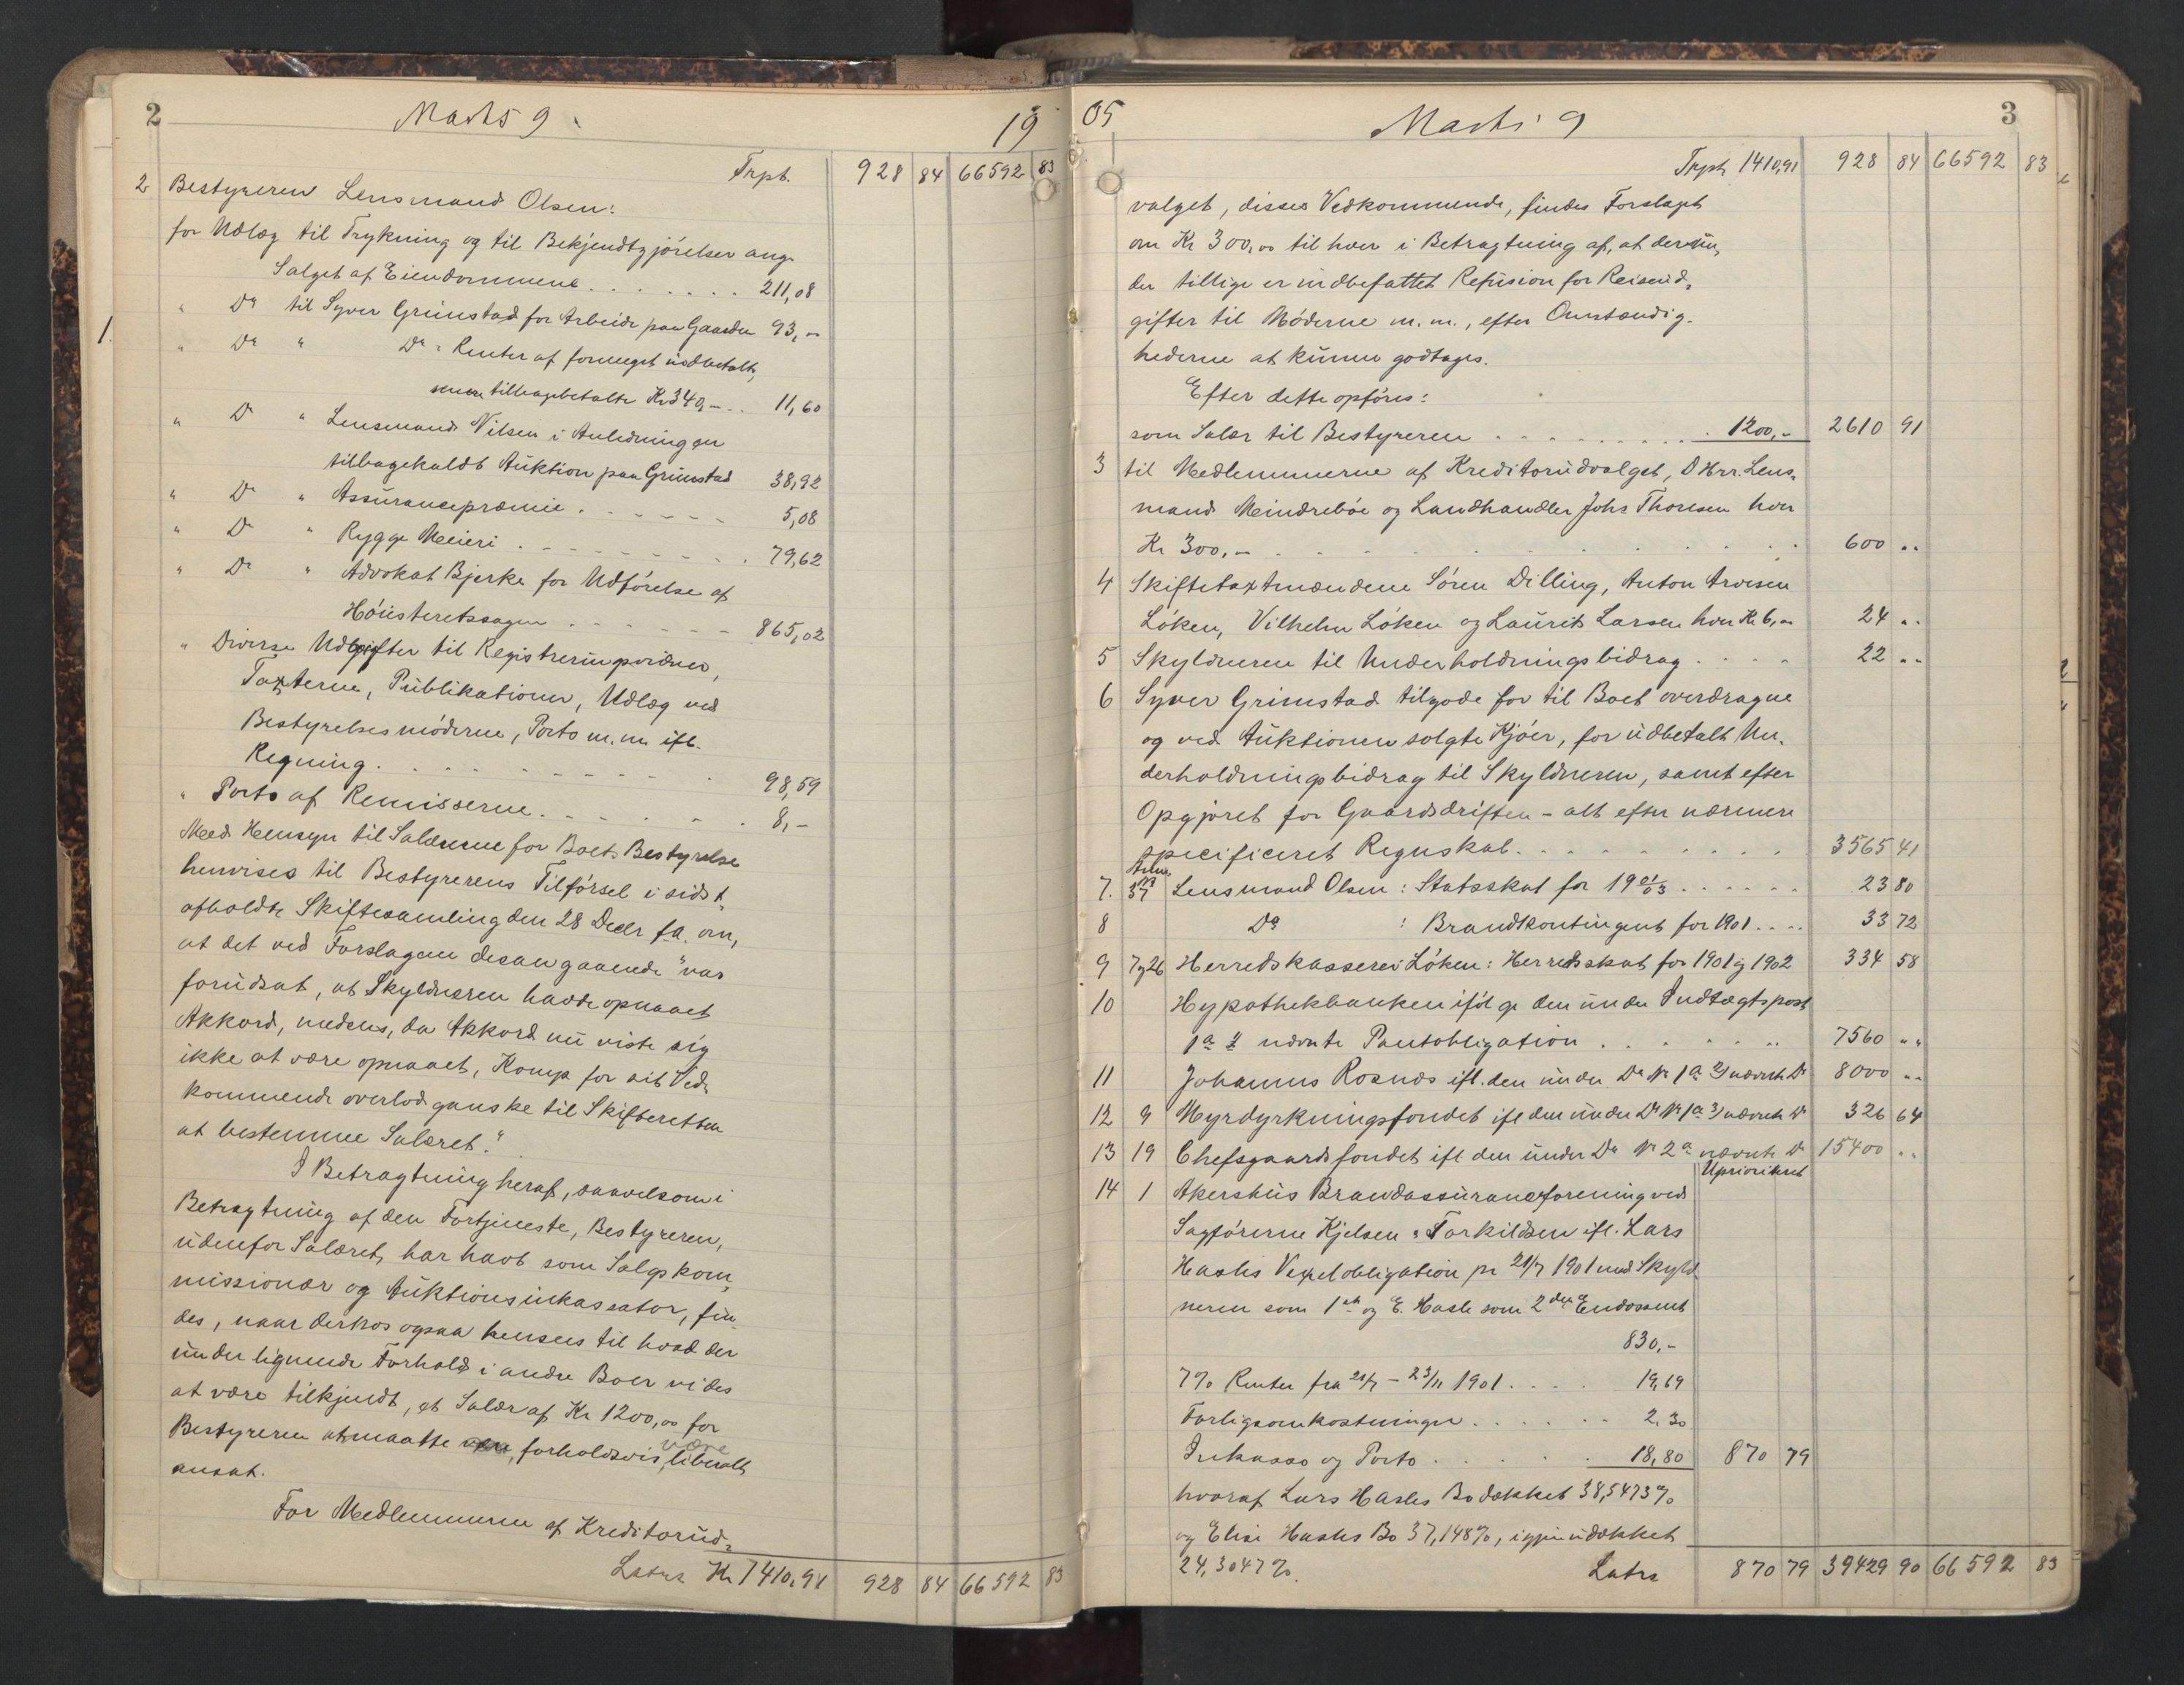 2
Marts 9
19
Trpt. 928 84 66592 83
2 Bestyreren Lensmand Olsen:
for Udlæg til Trykning og til Bekjendtgjørelser ang.
Salget af Eiendommene . . . . . . . 211,08
" Do til Syver Grimstad for Arbeide paa Gaarden 93,-
1.
" Do " Do : Renter af formeget udbetalt,
senere tilbagebetalte Kr 340,- . . 11,60
" Do " Lensmand Nilsen i Anledning en
tilbagekaldt Auktion paa Grimstad 38,92
" Do " Assurancepræmie . . . . . . 5,08
" Do " Rygge Meieri . . . . . . . . 79,62
" Do " Advokat Bjerke for Udførelse af
Høiesteretssagen . . . . . . 865,02
" Diverse Udgifter til Registreringsvidner,
Taxterne, Publikationer, Udlæg ved
Bestyrelsesmøderne, Porto m.m. ifl.
Regning . . . . . . . . . 98,59
" Porto af Remisserne . . . . . . 8,-
Med Hensyn til Salærerne for Boets Bestyrelse
henvises til Bestyrerens Tilførsel i sidst
afholdte Skiftesamling den 28 Decbr f.a. om,
at det ved Forslagene desangaaende "var
forudsat, at Skyldneren havde opnaaet
Akkord, medens, da Akkord nu viste sig
ikke at være opnaaet, Komp. for sit Ved-
kommende overlod ganske til Skifteretten
at bestemme Salæret."
I Betragtning heraf, saavelsom i
Betragtning af den Fortjeneste, Bestyreren,
udenfor Salæret, har havt som Salgskom-
missionær og Auktionsinkassator, fin-
des, naar derhos ogsaa hensees til hvad der
under lignende Forhold i andre Boer vides
at være tilkjendt, et Salær af Kr 1200,00 for
Bestyreren at maatte være forholdsvis liberalt
ansat.
For Medlemmerne af Kreditorud-
Latus Kr 1410,91 928 84 66592 83
05
Marts 9
3
Trpt 1410,91 928 84 66592 83
valget, disses Vedkommende, findes Forslaget
om Kr 300,00 til hver i Betragtning af, at derun-
der tillige er indbefattet Refusion for Reiseud-
gifter til Møderne m.m., efter Omstændig-
hederne at kunne godtages.
Efter dette opføres:
som Salær til Bestyreren . . . . . . . . . . 1200,- 2610 91
3 til Medlemmerne af Kreditorudvalget, D'Hrr. Lens-
mand Meindrebøe og Landhandler Johs Thoresen hver
Kr 300,- . . . . . . . . . . . . 600 ..
4 Skiftetaxtmændene Søren Dilling, Anton Arvesen
Løken, Vilhelm Løken og Laurits Larsen hver Kr 6,- 24 ..
5 Skyldneren til Underholdningsbidrag . . . . 22 ..
6 Syver Grimstad tilgode for til Boet overdragne
og ved Auktionen solgte Kjøer, for udbetalt Un-
derholdningsbidrag til Skyldneren, samt efter
Opgjøret for Gaardsdriften - alt efter nærmere
specificeret Regnskab . . . . . . . . . 3565 41
7. 37 Lensmand Olsen: Statsskat for 19 01/03 . . . . . . 23 80
8 Do : Brandkontingent for 1901 . . . . 33 72
9 7 g 26 Herredskasserer Løken: Herredsskat for 1901 g 1902 334 58
10 Hypothekbanken ifølge den under Indtægtspost
1 a 1 nævnte Pantobligation . . . . . . . . 7560 ..
11 Johannes Rosnæs ifl. den under Do No 1 a 2) nævnte Do 8000 ..
12 9 Myrdyrkningsfondet ifl den under Do No 1 a 3) nævnte Do 326 64
13 19 Chefsgaardsfondet ifl den under Do No 2 a nævnte Do 15400 ..
Uprioriteret
14 1 Akershus Brandassuranceforening ved
Sagførerne Kjelsen & Torkildsen ifl. Lars
Hasles Vexelobligation pr 21/7 1901 med Skyld-
neren som 1ste og E. Hasle som 2den Endossent
830,-
7% Renter fra 21/7 - 23/11 1901 . . . . 19,69
Forligsomkostninger . . . . . . 2,30
Inkasso og Porto . . . . . . 18,80 870 79
hvoraf Lars Hasles Bo dækket 38,5473%
og Elise Hasles Bo 37,148%, igjen udækket
24,3047%. Latus 870 79 39429 90 66592 83